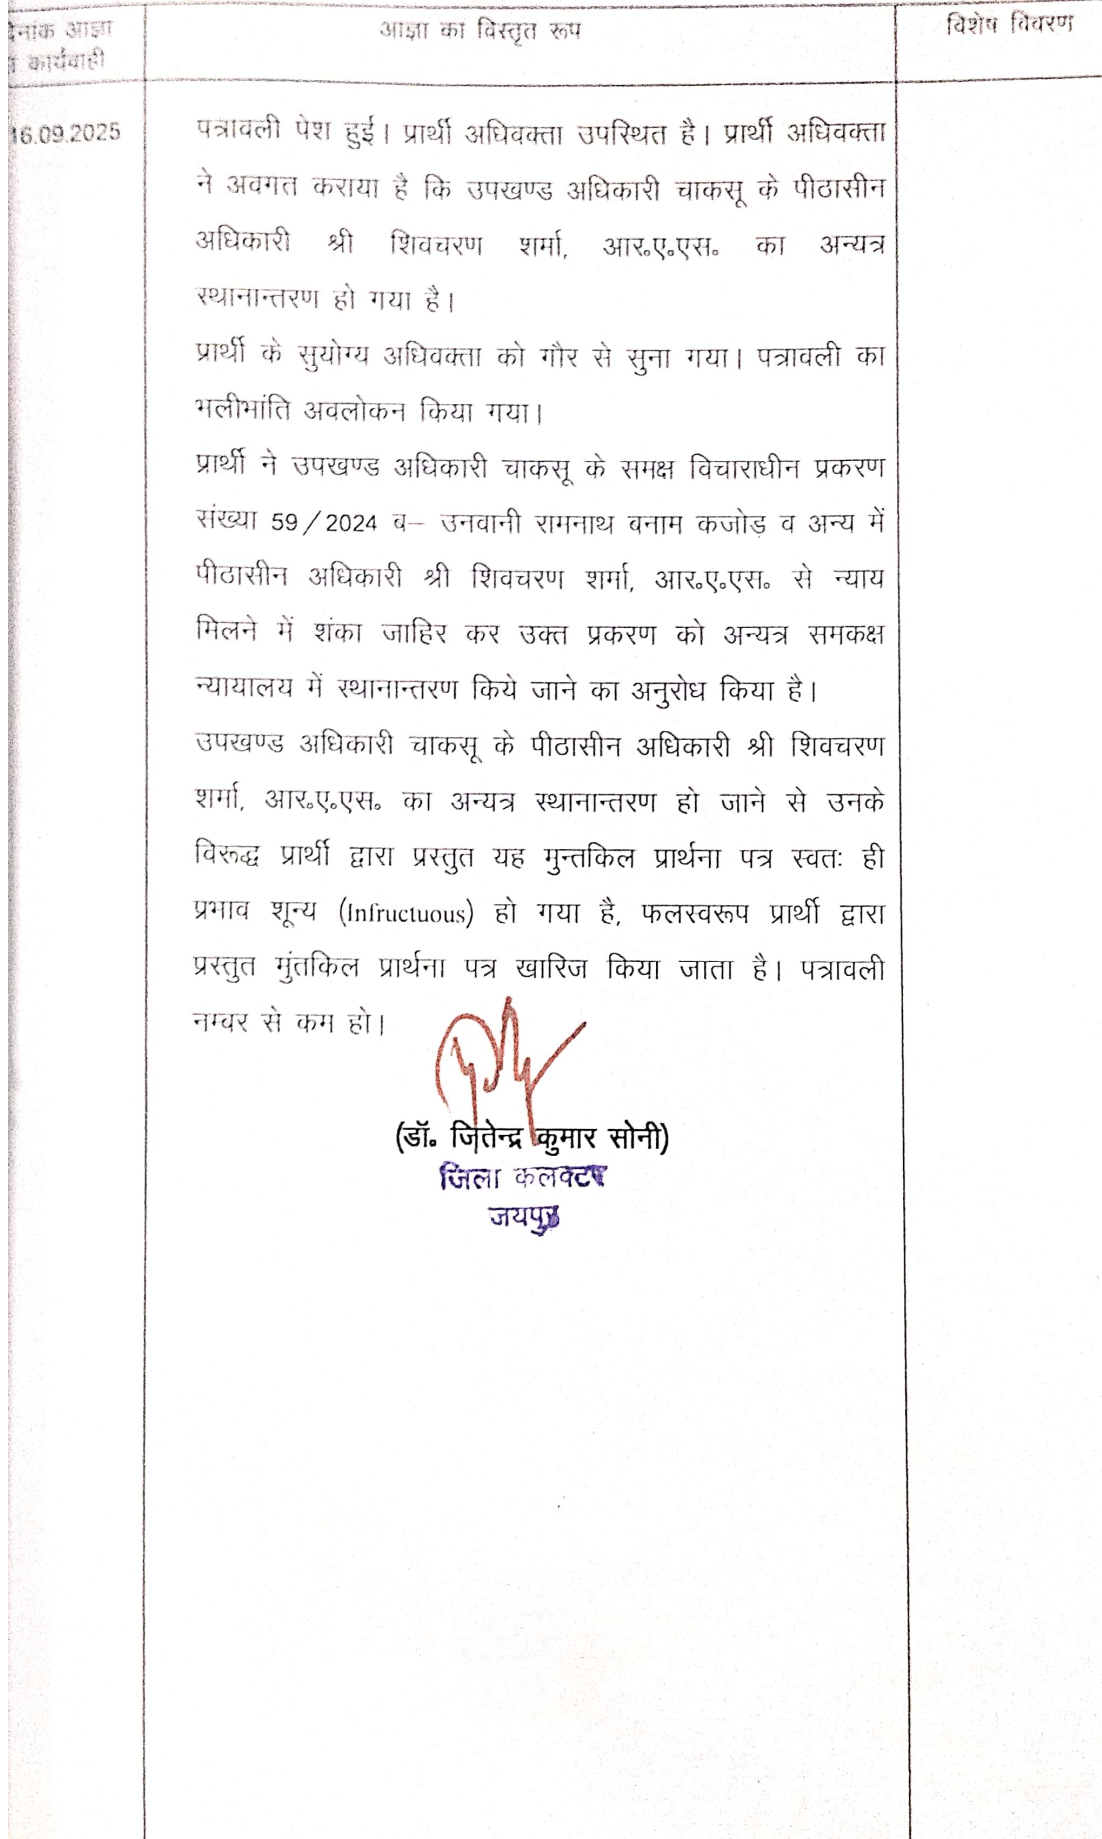 दिनांक आज्ञा
आज्ञा का विस्तृत रूप
विशेष विवरण
कार्यवाही
16.09.2025
पत्रावली पेश हुई। प्रार्थी अधिवक्ता उपस्थित है। प्रार्थी अधिवक्ता
ने अवगत कराया है कि उपखण्ड अधिकारी चाकसू के पीठासीन
अधिकारी श्री शिवचरण शर्मा, आर०ए०एस० का अन्यत्र
स्थानान्तरण हो गया है।
प्रार्थी के सुयोग्य अधिवक्ता को गौर से सुना गया। पत्रावली का
भलीभांति अवलोकन किया गया।
प्रार्थी ने उपखण्ड अधिकारी चाकसू के समक्ष विचाराधीन प्रकरण
संख्या 59/2024 ब– उनवानी रामनाथ बनाम कजोड़ व अन्य में
पीठासीन अधिकारी श्री शिवचरण शर्मा, आर०ए०एस० से न्याय
मिलने में शंका जाहिर कर उक्त प्रकरण को अन्यत्र समकक्ष
न्यायालय में स्थानान्तरण किये जाने का अनुरोध किया है।
उपखण्ड अधिकारी चाकसू के पीठासीन अधिकारी श्री शिवचरण
शर्मा, आर०ए०एस० का अन्यत्र स्थानान्तरण हो जाने से उनके
विरूद्ध प्रार्थी द्वारा प्रस्तुत यह मुन्तकिल प्रार्थना पत्र स्वतः ही
प्रभाव शून्य (Infructuous) हो गया है, फलस्वरूप प्रार्थी द्वारा
प्रस्तुत मुंतकिल प्रार्थना पत्र खारिज किया जाता है। पत्रावली
नम्बर से कम हो।
(डॉ० जितेन्द्र कुमार सोनी)
जिला कलक्टर
जयपुर